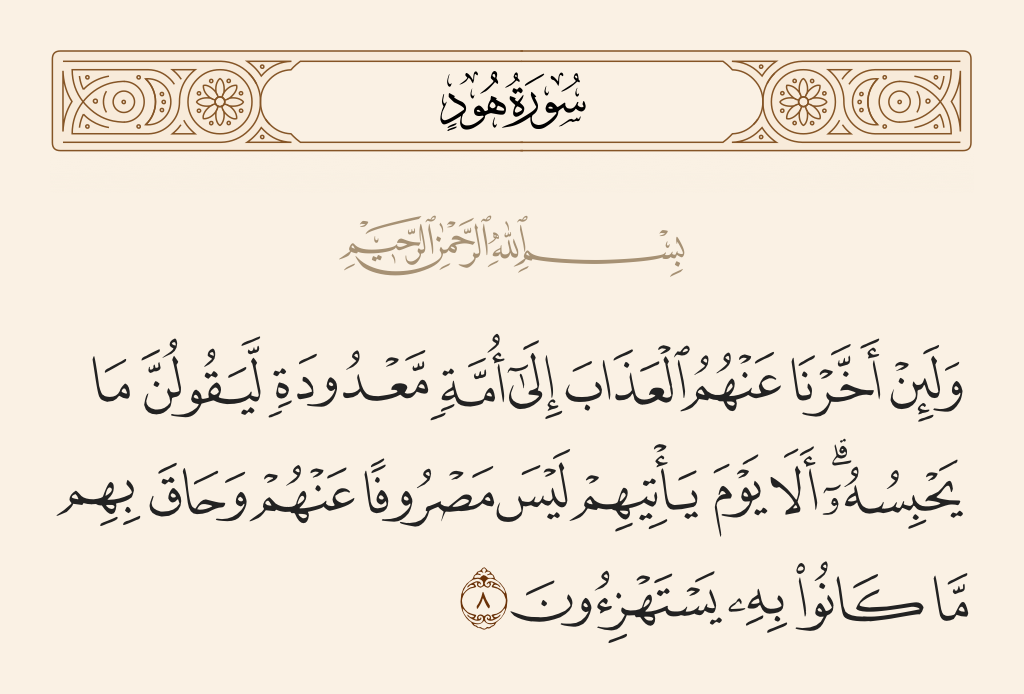 سُورَةُ هُودٍ
بِسْمِ ٱللَّهِ ٱلرَّحْمَٰنِ ٱلرَّحِيمِ
وَلَئِنْ أَخَّرْنَا عَنْهُمُ ٱلْعَذَابَ إِلَىٰٓ أُمَّةٍ مَّعْدُودَةٍ لَّيَقُولُنَّ مَا
يَحْبِسُهُۥٓ ۗ أَلَا يَوْمَ يَأْتِيهِمْ لَيْسَ مَصْرُوفًا عَنْهُمْ وَحَاقَ بِهِم
مَّا كَانُوا۟ بِهِۦ يَسْتَهْزِءُونَ ٨